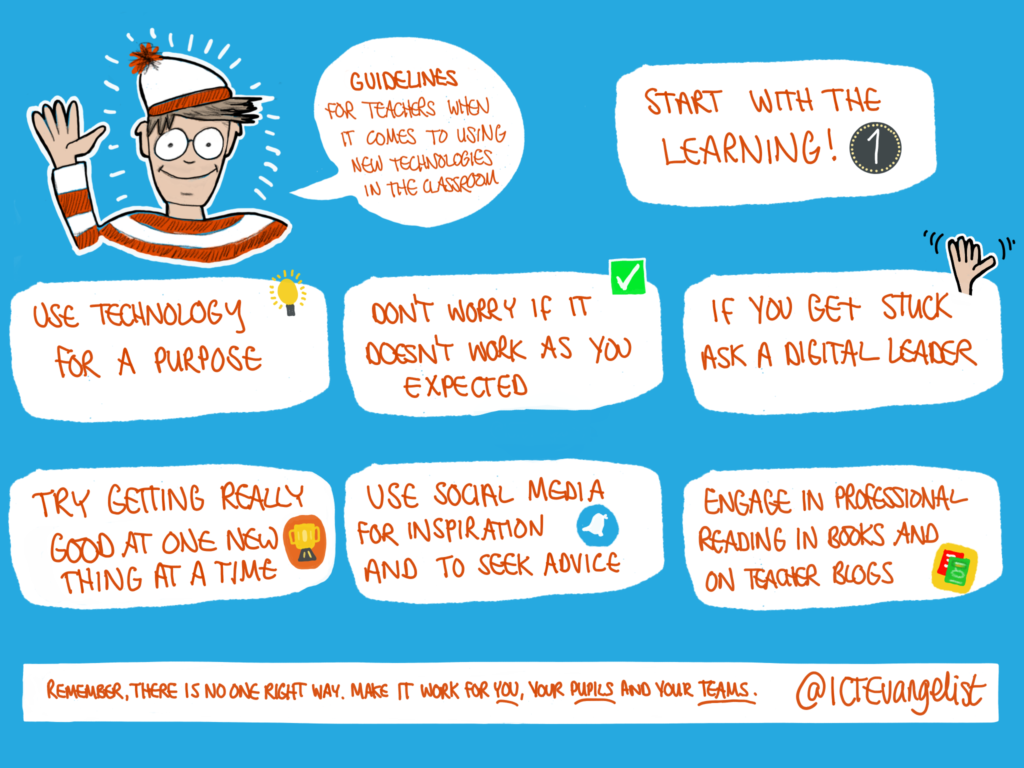 GUIDELINES
FOR TEACHERS WHEN
IT COMES TO USING
NEW TECHNOLOGIES
IN THE CLASSROOM
START WITH THE
LEARNING! 1
USE TECHNOLOGY
FOR A PURPOSE
DON'T WORRY IF IT
DOESN'T WORK AS YOU
EXPECTED
IF YOU GET STUCK
ASK A DIGITAL LEADER
TRY GETTING REALLY
GOOD AT ONE NEW
THING AT A TIME
USE SOCIAL MEDIA
FOR INSPIRATION
AND TO SEEK ADVICE
ENGAGE IN PROFESSIONAL
READING IN BOOKS AND
ON TEACHER BLOGS
REMEMBER, THERE IS NO ONE RIGHT WAY. MAKE IT WORK FOR YOU, YOUR PUPILS AND YOUR TEAMS. @ICTEvangelist